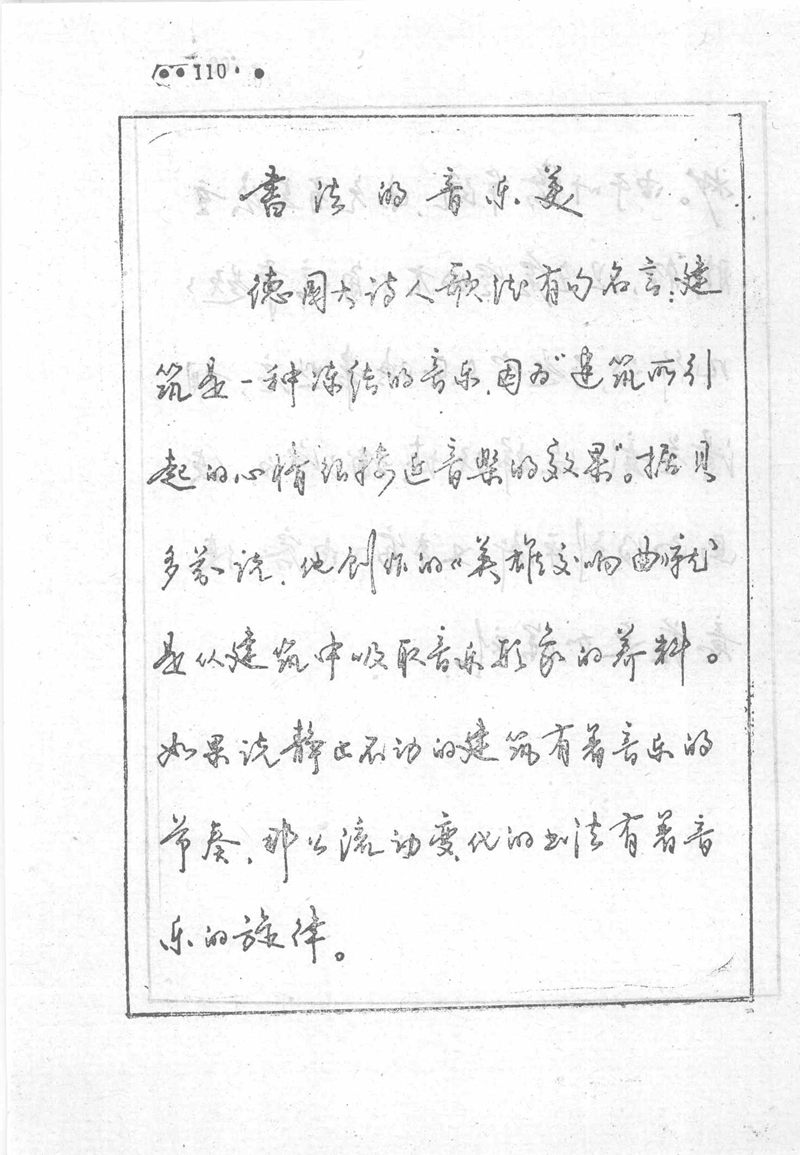 110
书法的音乐美
德国大诗人歌德有句名言:建
筑是一种冻结的音乐,因为“建筑所引
起的心情很接近音乐的效果”。据贝
多芬说,他创作的《英雄交响曲》就
是从建筑中吸取音乐形象的养料。
如果说静止不动的建筑有着音乐的
节奏,那么流动变化的书法有着音
乐的旋律。